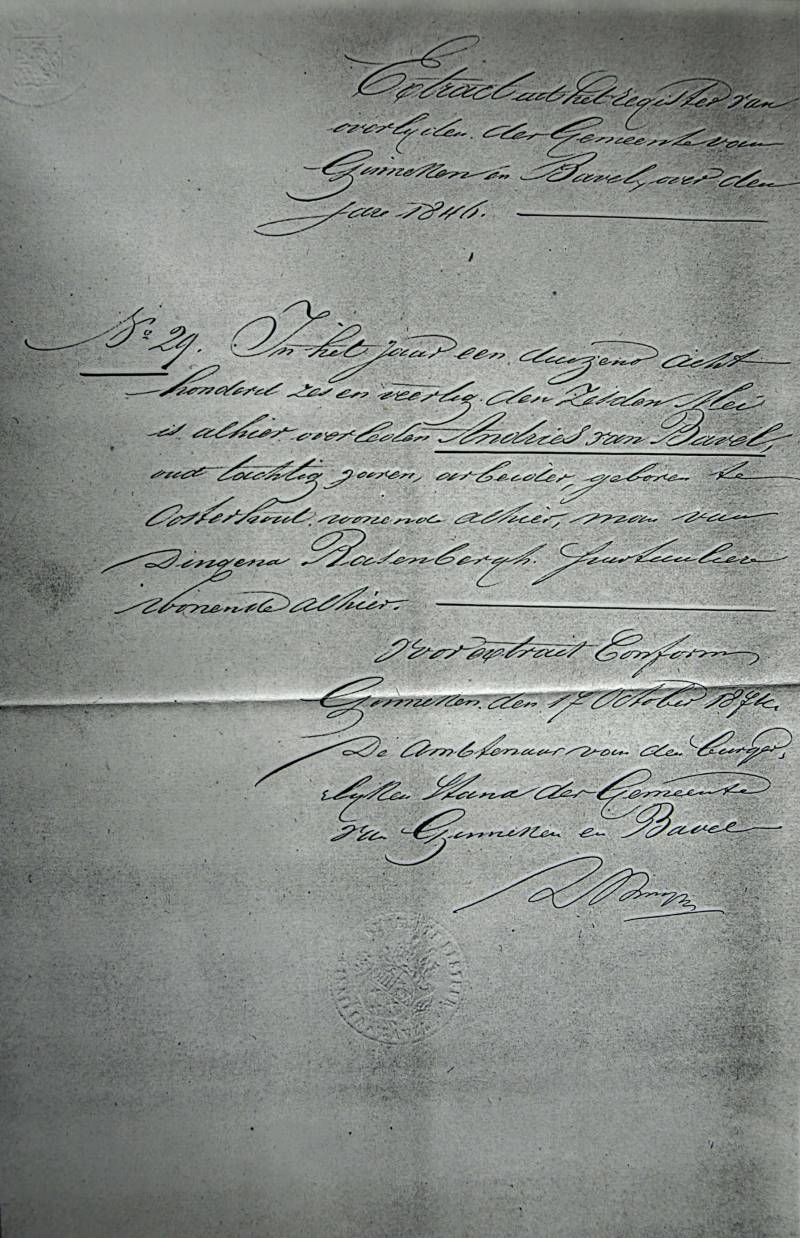 Extract uit het register van
overlyden der Gemeente van
Ginneken en Bavel, over den
Jare 1846.
No 29. In het jaar een duizend acht
honderd zes en veertig den Zesden Mei
is alhier overleden Andries van Bavel,
oud tachtig jaren, arbeider, geboren te
Oosterhout, wonende alhier, man van
Dingena Rasenbergh. Particuliere
wonende alhier.
Voor extrait Conform
Ginneken, den 17 October 1874.
De Ambtenaar van den burger-
lyken Stand der Gemeente
van Ginneken en Bavel